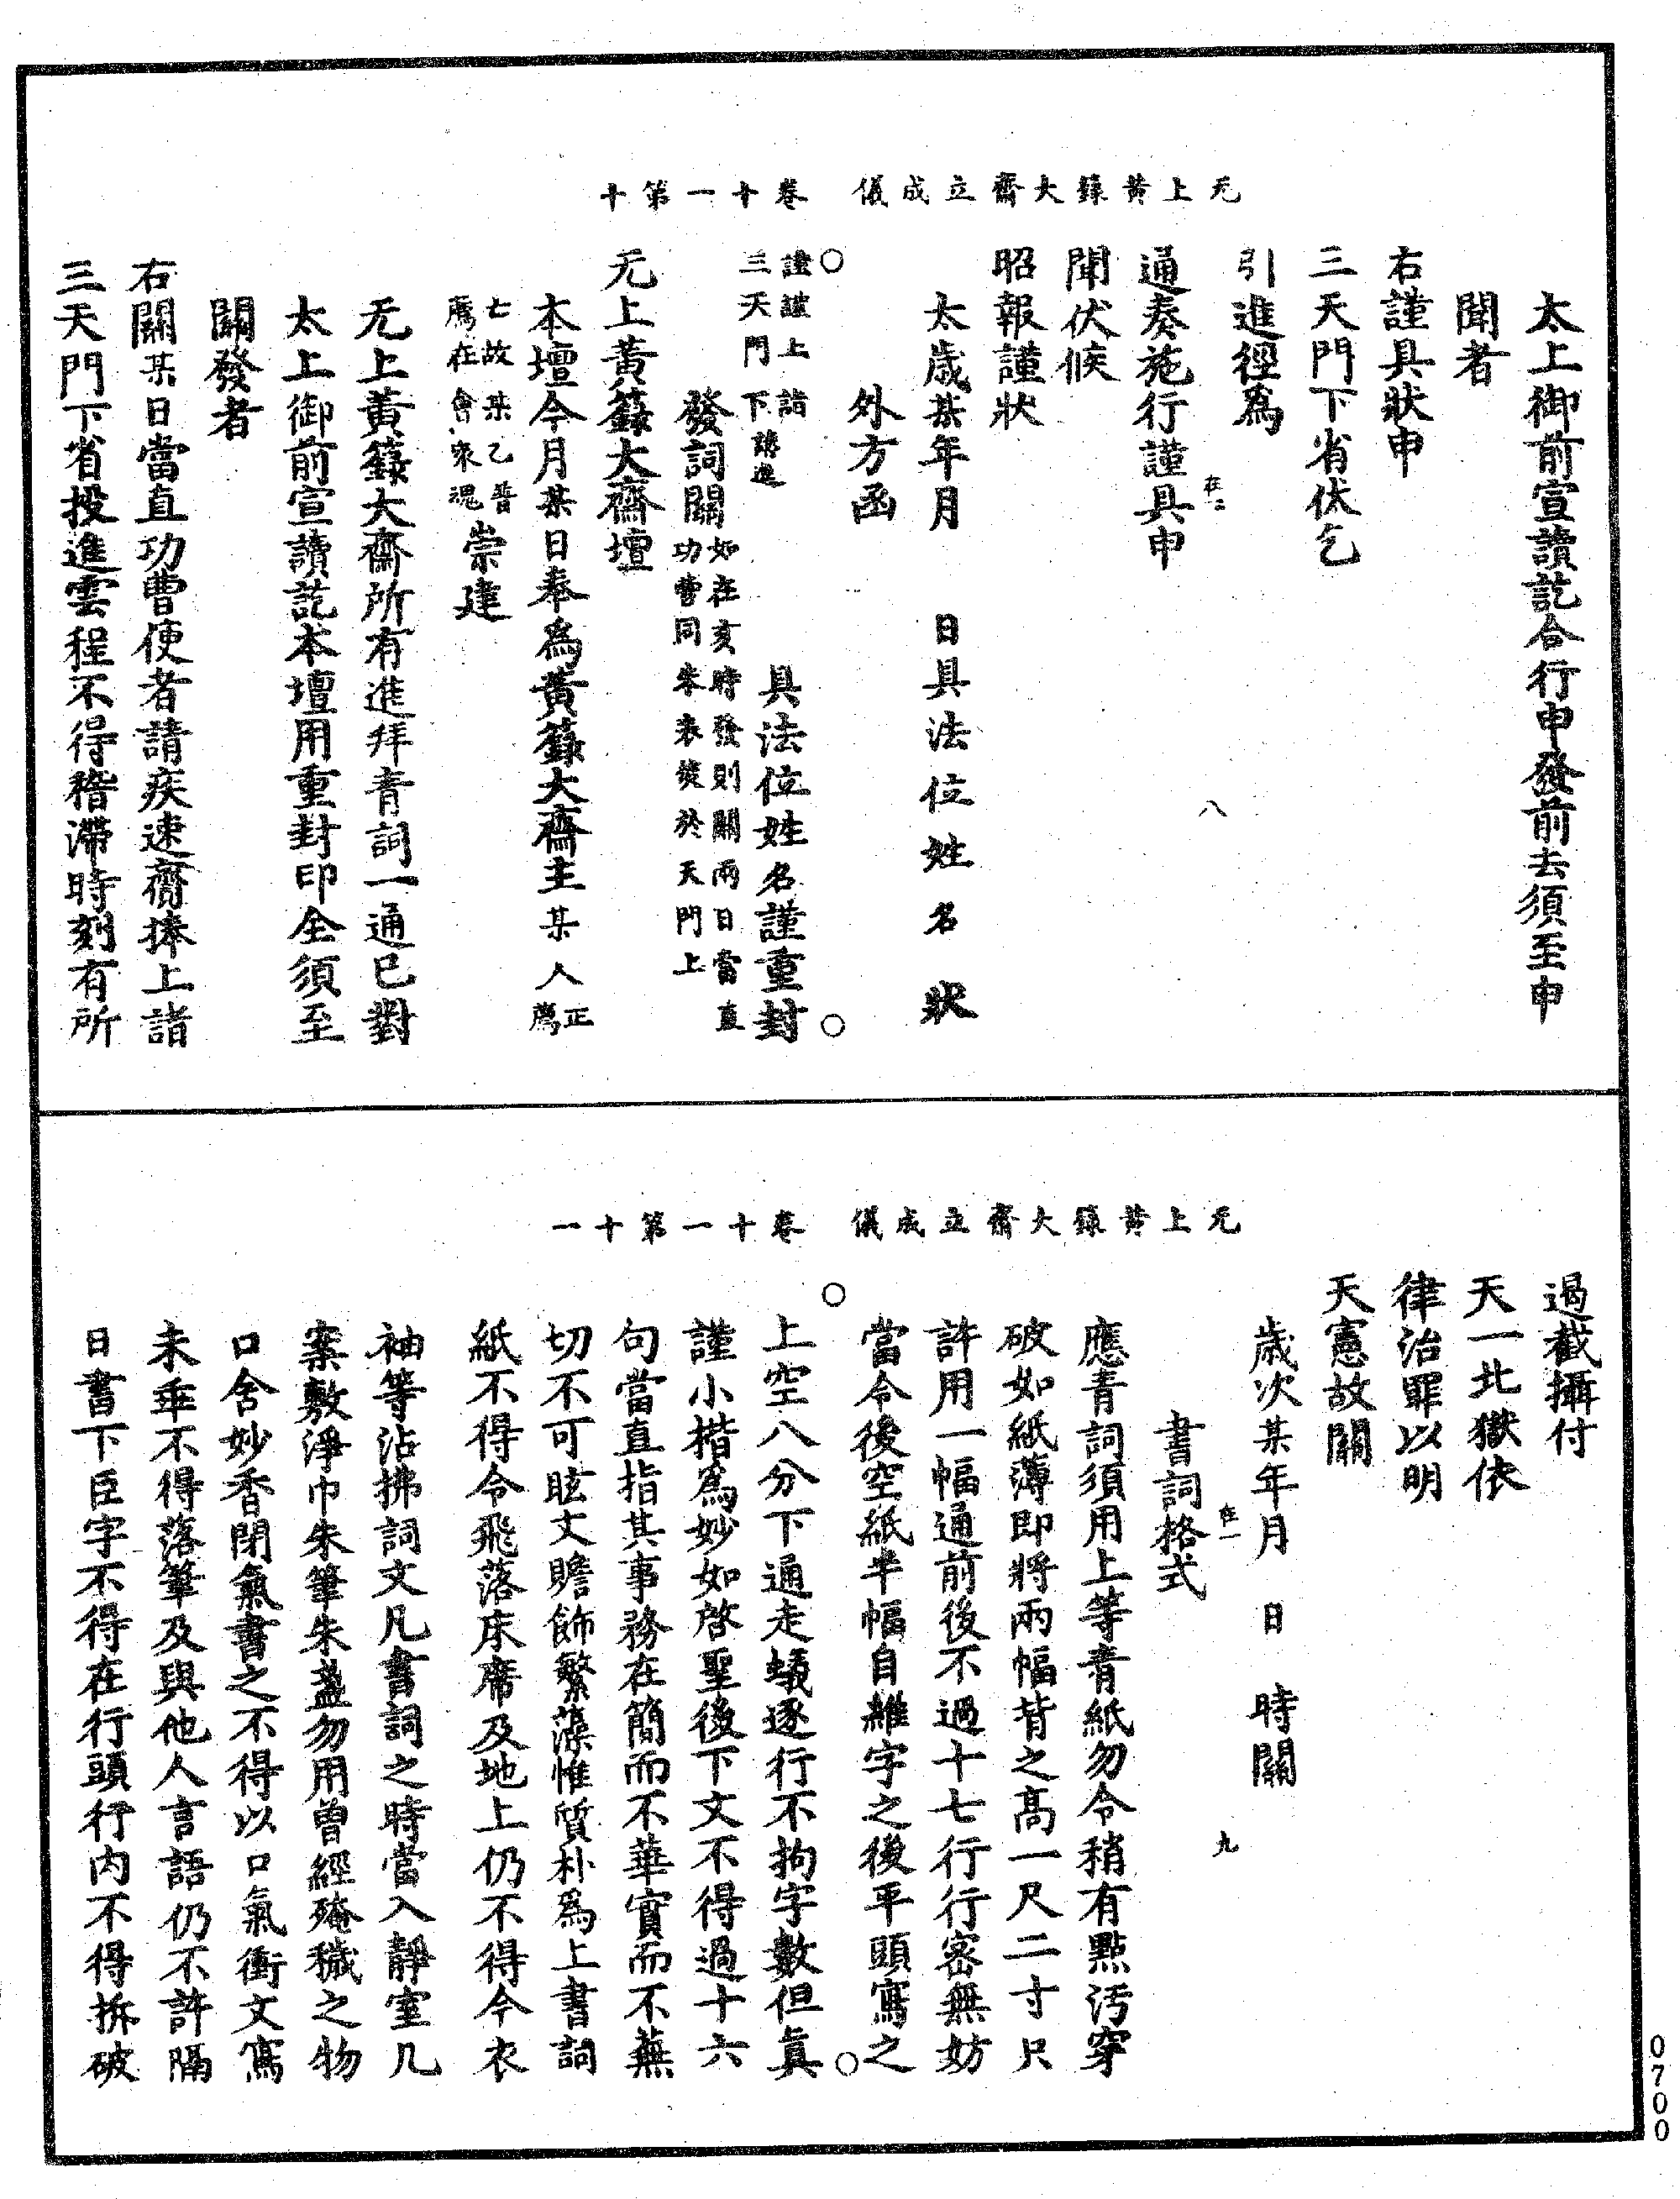 无上黃籙大齋立成儀　卷十一第十
太上御前宣讀訖合行申發前去須至申
聞者
右謹具狀申
三天門下省伏乞
引進徑爲
在二　八
通奏施行謹具申
聞伏候
昭報謹狀
太歲某年月　日具法位姓名　狀
外方函
謹謹上詣
三天門下請進
具法位姓名謹重封
發詞關如在亥時發則關兩日當直
功曹同朱衣焚於天門上
无上黃籙大齋壇
本壇今月某日奉爲黃籙大齋主某人正
薦
亡故某乙普
薦在會衆魂
崇建
无上黃籙大齋所有進拜青詞一通已對
太上御前宣讀訖本壇用重封印全須至
關發者
右關某日當直功曹使者請疾速齎捧上詣
三天門下省投進雲程不得稽滯時刻有所
无上黃籙大齋立成儀　卷十一第十一
遏截攝付
天一北獄依
律治罪以明
天憲故關
歲次某年月　日　時關
在一　九
書詞格式
應青詞須用上等青紙勿令稍有點污穿
破如紙薄即將兩幅背之高一尺二寸只
許用一幅通前後不過十七行行密無妨
當令後空紙半幅自維字之後平頭寫之
上空八分下通走蟻逐行不拘字數但眞
謹小楷爲妙如啓聖後下文不得過十六
句當直指其事務在簡而不華實而不蕪
切不可眩文贍飾繁藻惟質朴爲上書詞
紙不得令飛落床席及地上仍不得令衣
袖等沾拂詞文凡書詞之時當入靜室几
案敷淨巾朱筆朱盞勿用曾經殗穢之物
口含妙香閉氣書之不得以口氣衝文寫
未畢不得落筆及與他人言語仍不許隔
日書下臣字不得在行頭行内不得拆破
0700